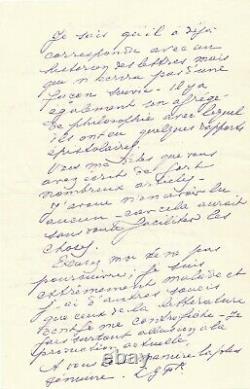 Je sais qu'il a déjà
correspondu avec un
historien des lettres mais
qui n'écrira pas d'une
façon suivie - il y a
également un agrégé
de philosophie avec lequel
ils ont eu quelques rapports
épistolaires.
Vous me dites que vous
avez écrit de fort
nombreux articles -
J'avoue n'en avoir lu
aucun - car cela aurait
sans doute faciliter les
choses.
Excusez moi de ne pas
poursuivre; je suis
extrêmement malade et
j'ai d'autres soucis
que ceux de la littérature
me contrefiche - Je
fais surtout allusion à la
production actuelle.
A vous la plus